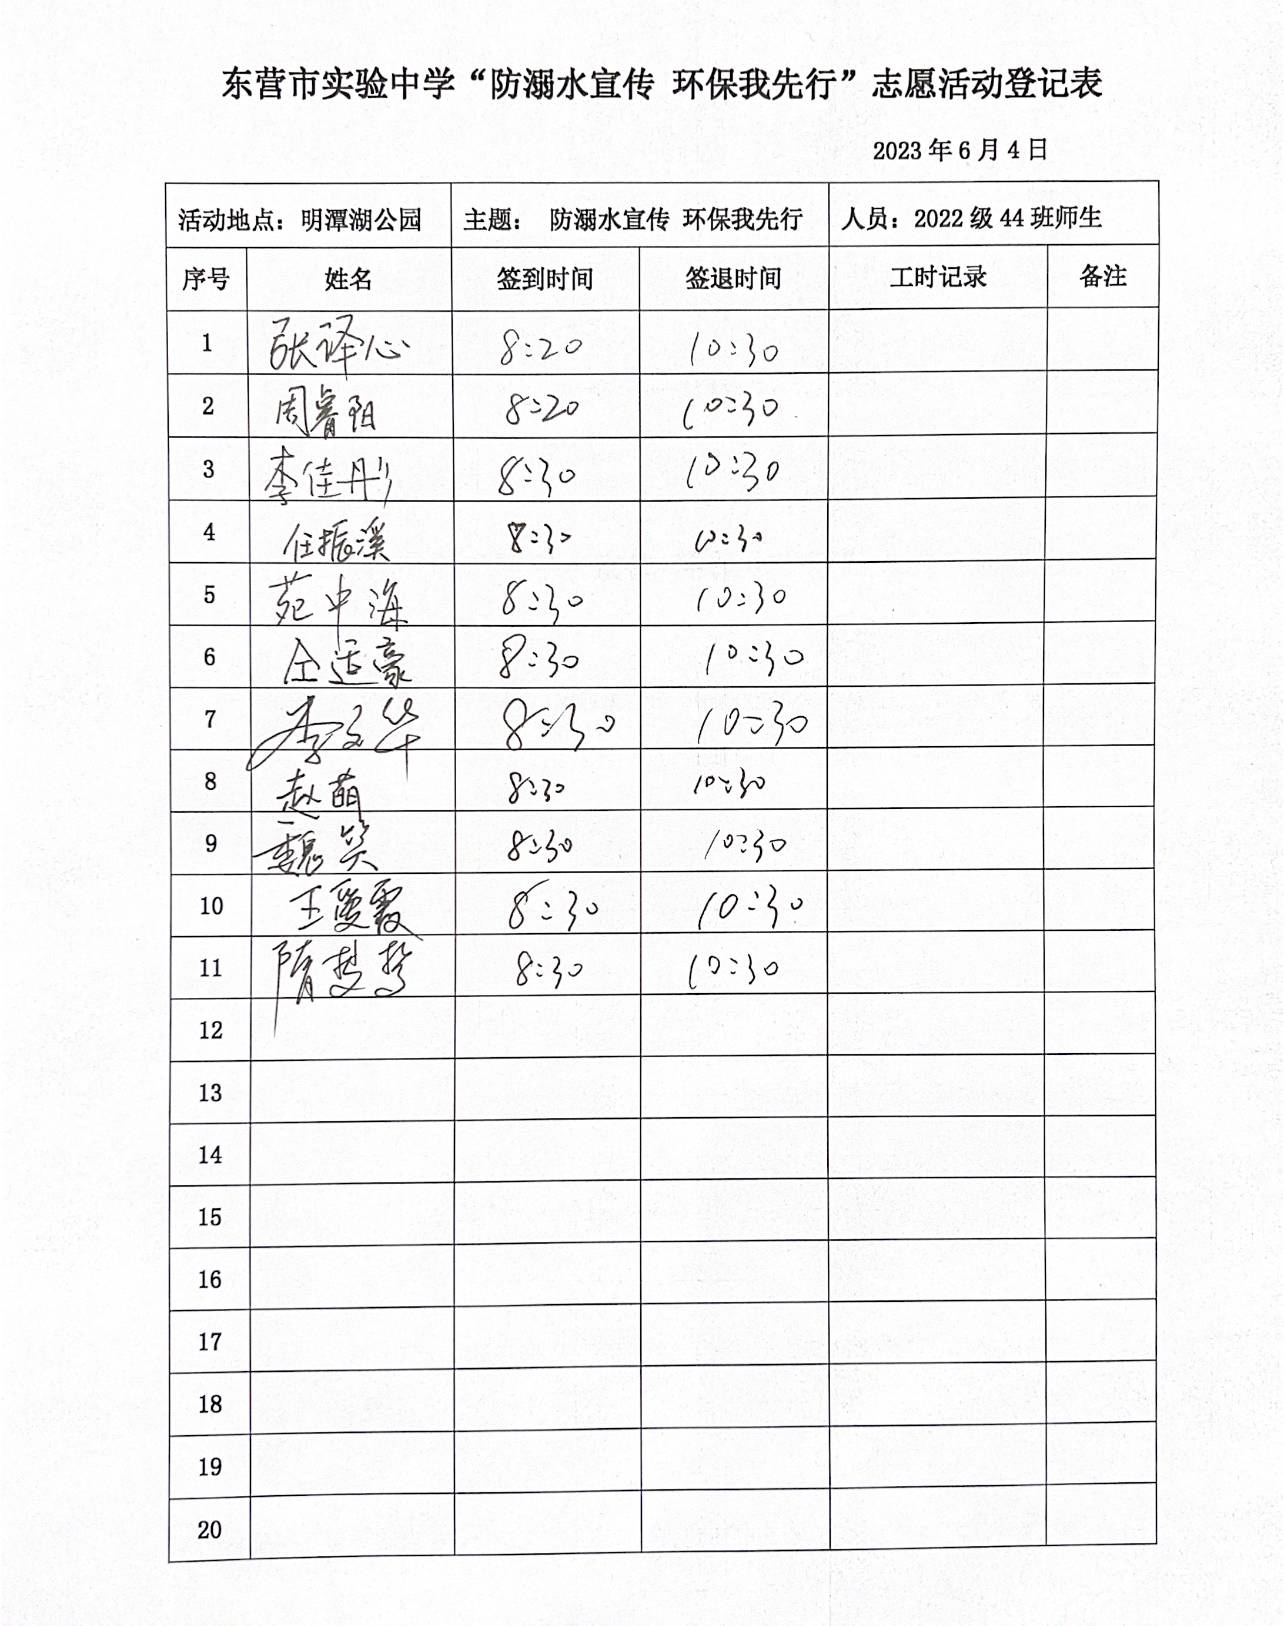 东营市实验中学“防溺水宣传 环保我先行”志愿活动登记表
2023 年 6 月 4 日
活动地点：明潭湖公园 主题： 防溺水宣传 环保我先行 人员：2022 级 44 班师生
序号 姓名 签到时间 签退时间 工时记录 备注
1 张译心 8:20 10:30
2 周睿阳 8:20 10:30
3 李佳彤 8:30 10:30
4 任振溪 8:30 10:30
5 苑中海 8:30 10:30
6 8:30 10:30
7 李文华 8:30 10:30
8 赵萌 8:30 10:30
9 魏笑 8:30 10:30
10 王爱霞 8:30 10:30
11 隋楚哲 8:30 10:30
12
13
14
15
16
17
18
19
20